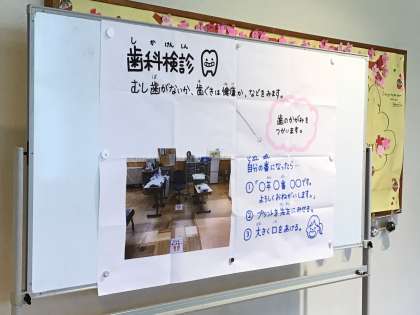 しかけんしん
歯科検診
むし歯がないか、歯ぐきは健康か、などをみます。
歯のかがみを
つかいます。
自分の番になったら…
①"○年○番 ○○です。
よろしくおねがいします。"
②プリントを先生にみせる。
③大きく口をあける。